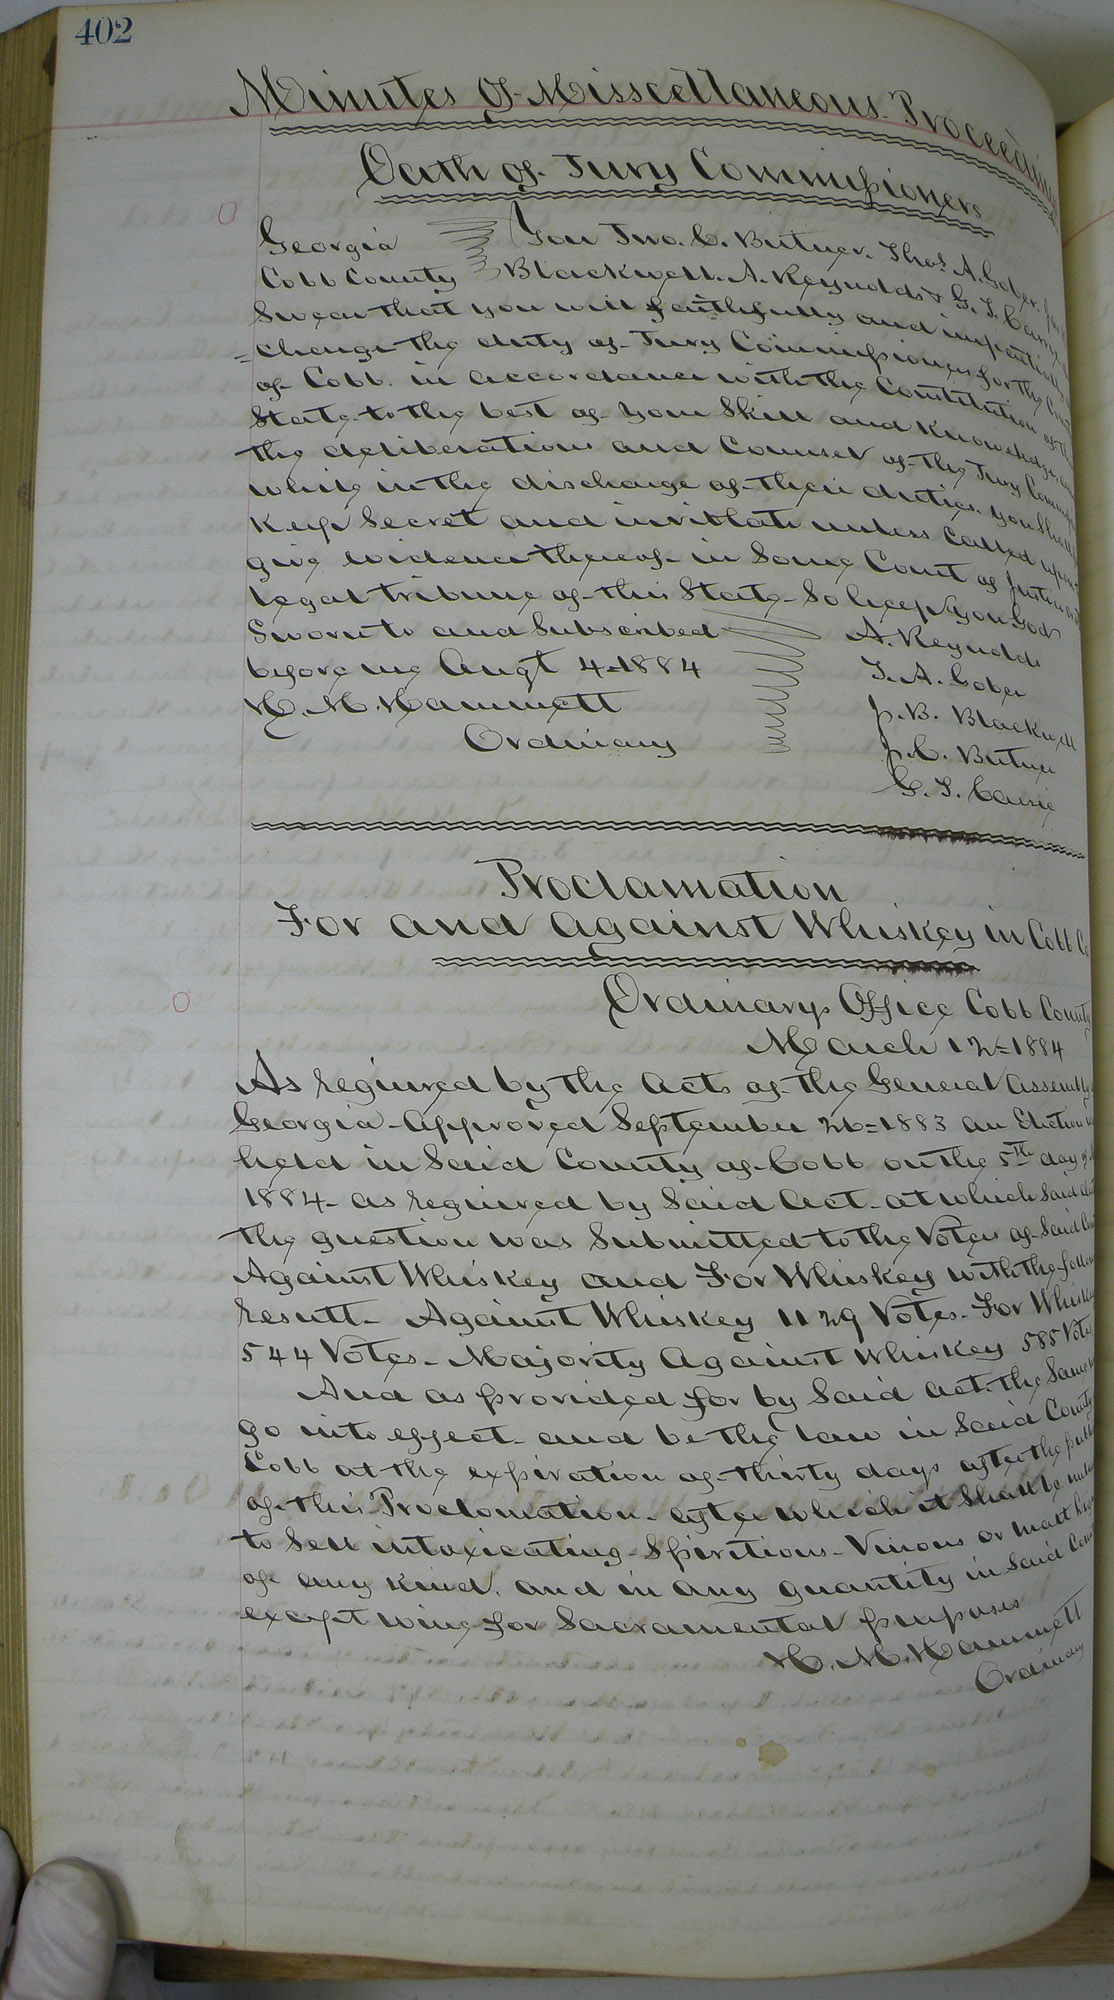 402
Minutes of Misscellaneous Proceedin
Oath of Jury Commissioners
Georgia You Jno. C. Butner. Thos. A. Gober.
Cobb County Blackwell. A. Reynolds & G. T. Carrie
Swear that you will faithfully and impartially
charge the duty of Jury Commissioner for the Count
of Cobb. in accordance with the Constitution of the
State to the best of your Skill and Knowledge. and
the deliberations and Counsel of the Jury Commis
while in the discharge of their duties. you Shall
Keep Secret and inviolate unless Called upon
give evidence thereof in Some Court of Justice or
Legal tribune of this State. So help you God
Sworn to and Subscribed A. Reynolds
before me Augt 4=1884 T. A. Gober
H. M. Hammett J. B. Blackwell
Ordinary J. C. Butner
G. T. Carrie
Proclamation
For and against Whiskey in Cobb Co
Ordinarys Office Cobb County
March 12=1884
As required by the acts of the General Assembly
Georgia - approved September 26=1883 an Election
held in Said County of Cobb on the 5th day of
1884 - as required by Said Act - at which Said
the question was Submitted to the Voters of Said
Against Whiskey and For Whiskey with the follow
result - Against Whiskey 1129 Votes - For Whiskey
544 Votes - Majority Against Whiskey 585 Votes
And as provided for by Said act the Same
go into effect - and be the law in Said County
Cobb at the expiration of thirty days after the publi
of this Proclamation - after which it Shall be
to Sell intoxicating - Spiritious - Vinous or malt
of any Kind. and in any quantity in Said
except wine for Sacramental purposes
H. M. Hammett
Ordinary